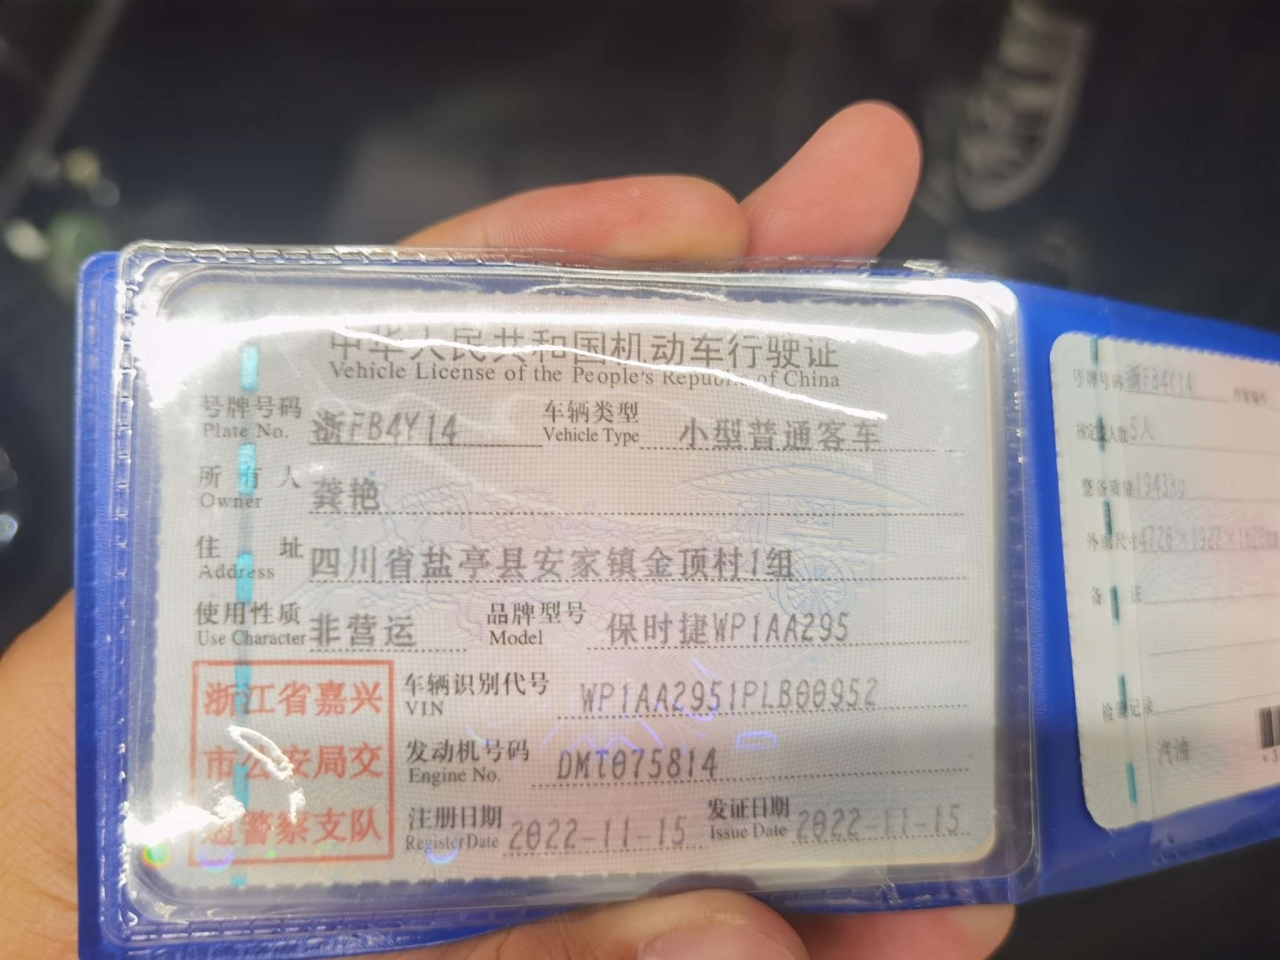 中华人民共和国机动车行驶证
Vehicle License of the People's Republic of China
号牌号码 浙FB4Y14 车辆类型 小型普通客车
Plate No. Vehicle Type
所有人 龚艳
Owner
住址 四川省盐亭县安家镇金顶村1组
Address
使用性质 非营运 品牌型号 保时捷WP1AA295
Use Character Model
浙江省嘉兴
市公安局交
通警察支队
车辆识别代号 WP1AA2951PLB00952
VIN
发动机号码 DMT075814
Engine No.
注册日期 2022-11-15 发证日期 2022-11-15
Register Date Issue Date
号牌号码 浙FB4Y14
核定载人数 5人
整备质量 1943kg
外廓尺寸
备注
检验记录
汽油